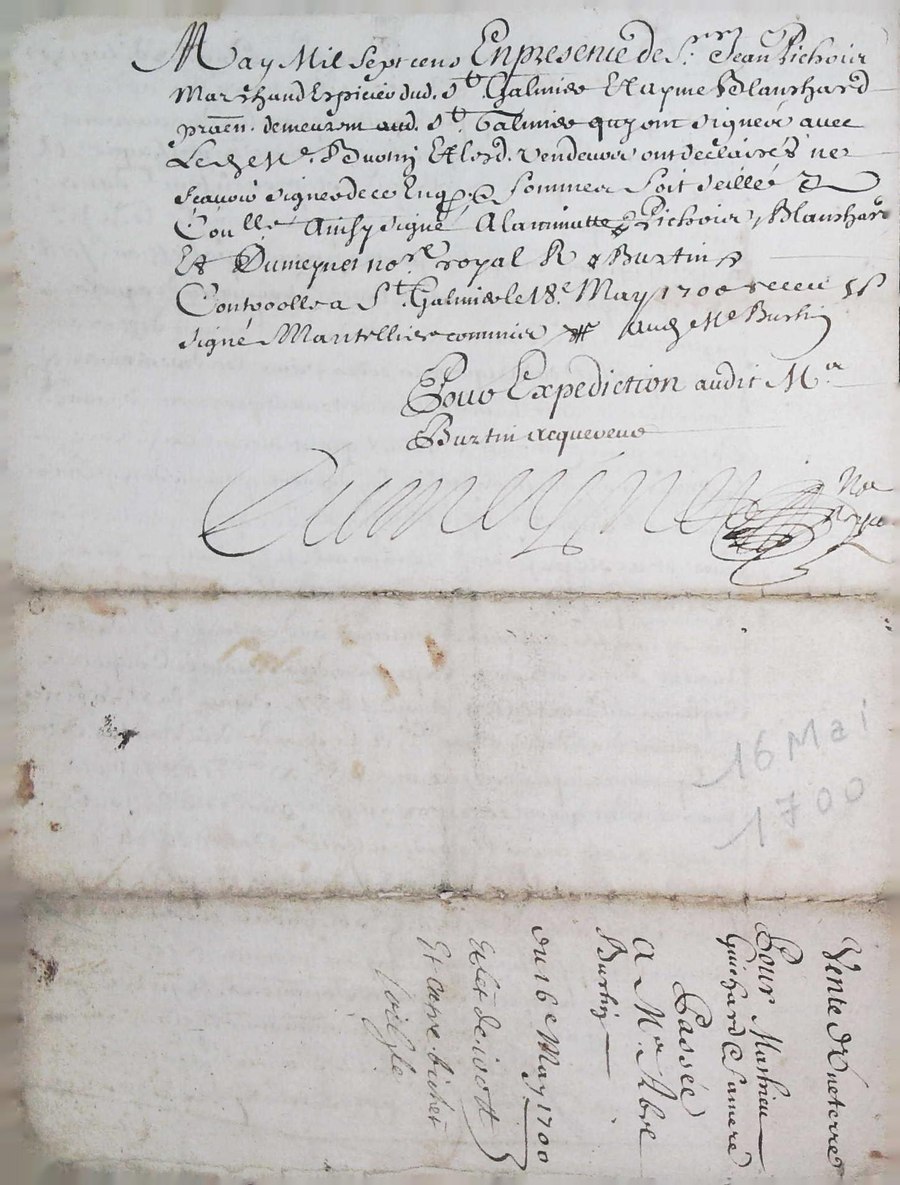 May Mil Sept cens En presence de Sr. Jean Pichoir
Marchand Espicier dud. St. Galmier Et Blanchard
praen. demeurm aud. St. Galmier quy ont signér avec
Led. Me. Burtin Et lesd. vendeurs ont declairés ne
scavoir signer de ce Enq. Sommer Soit seillée &
Coullé Ainsy signé A la minutte Pichoir, Blanchard
Et Dumeynet nore. royal R & Burtin
Controolle a St. Galmier le 18e May 1700 receu
signé Mantellier commis aud Me Burtin
Pour Expediction audit Mr
Burtin acquereur
Dumeynet
16 Mai
1700
Vente d'Une terre
Pour Mathieu
Guichard & Sa mere
Passée
A Me Abre
Burtin
du 16e May 1700